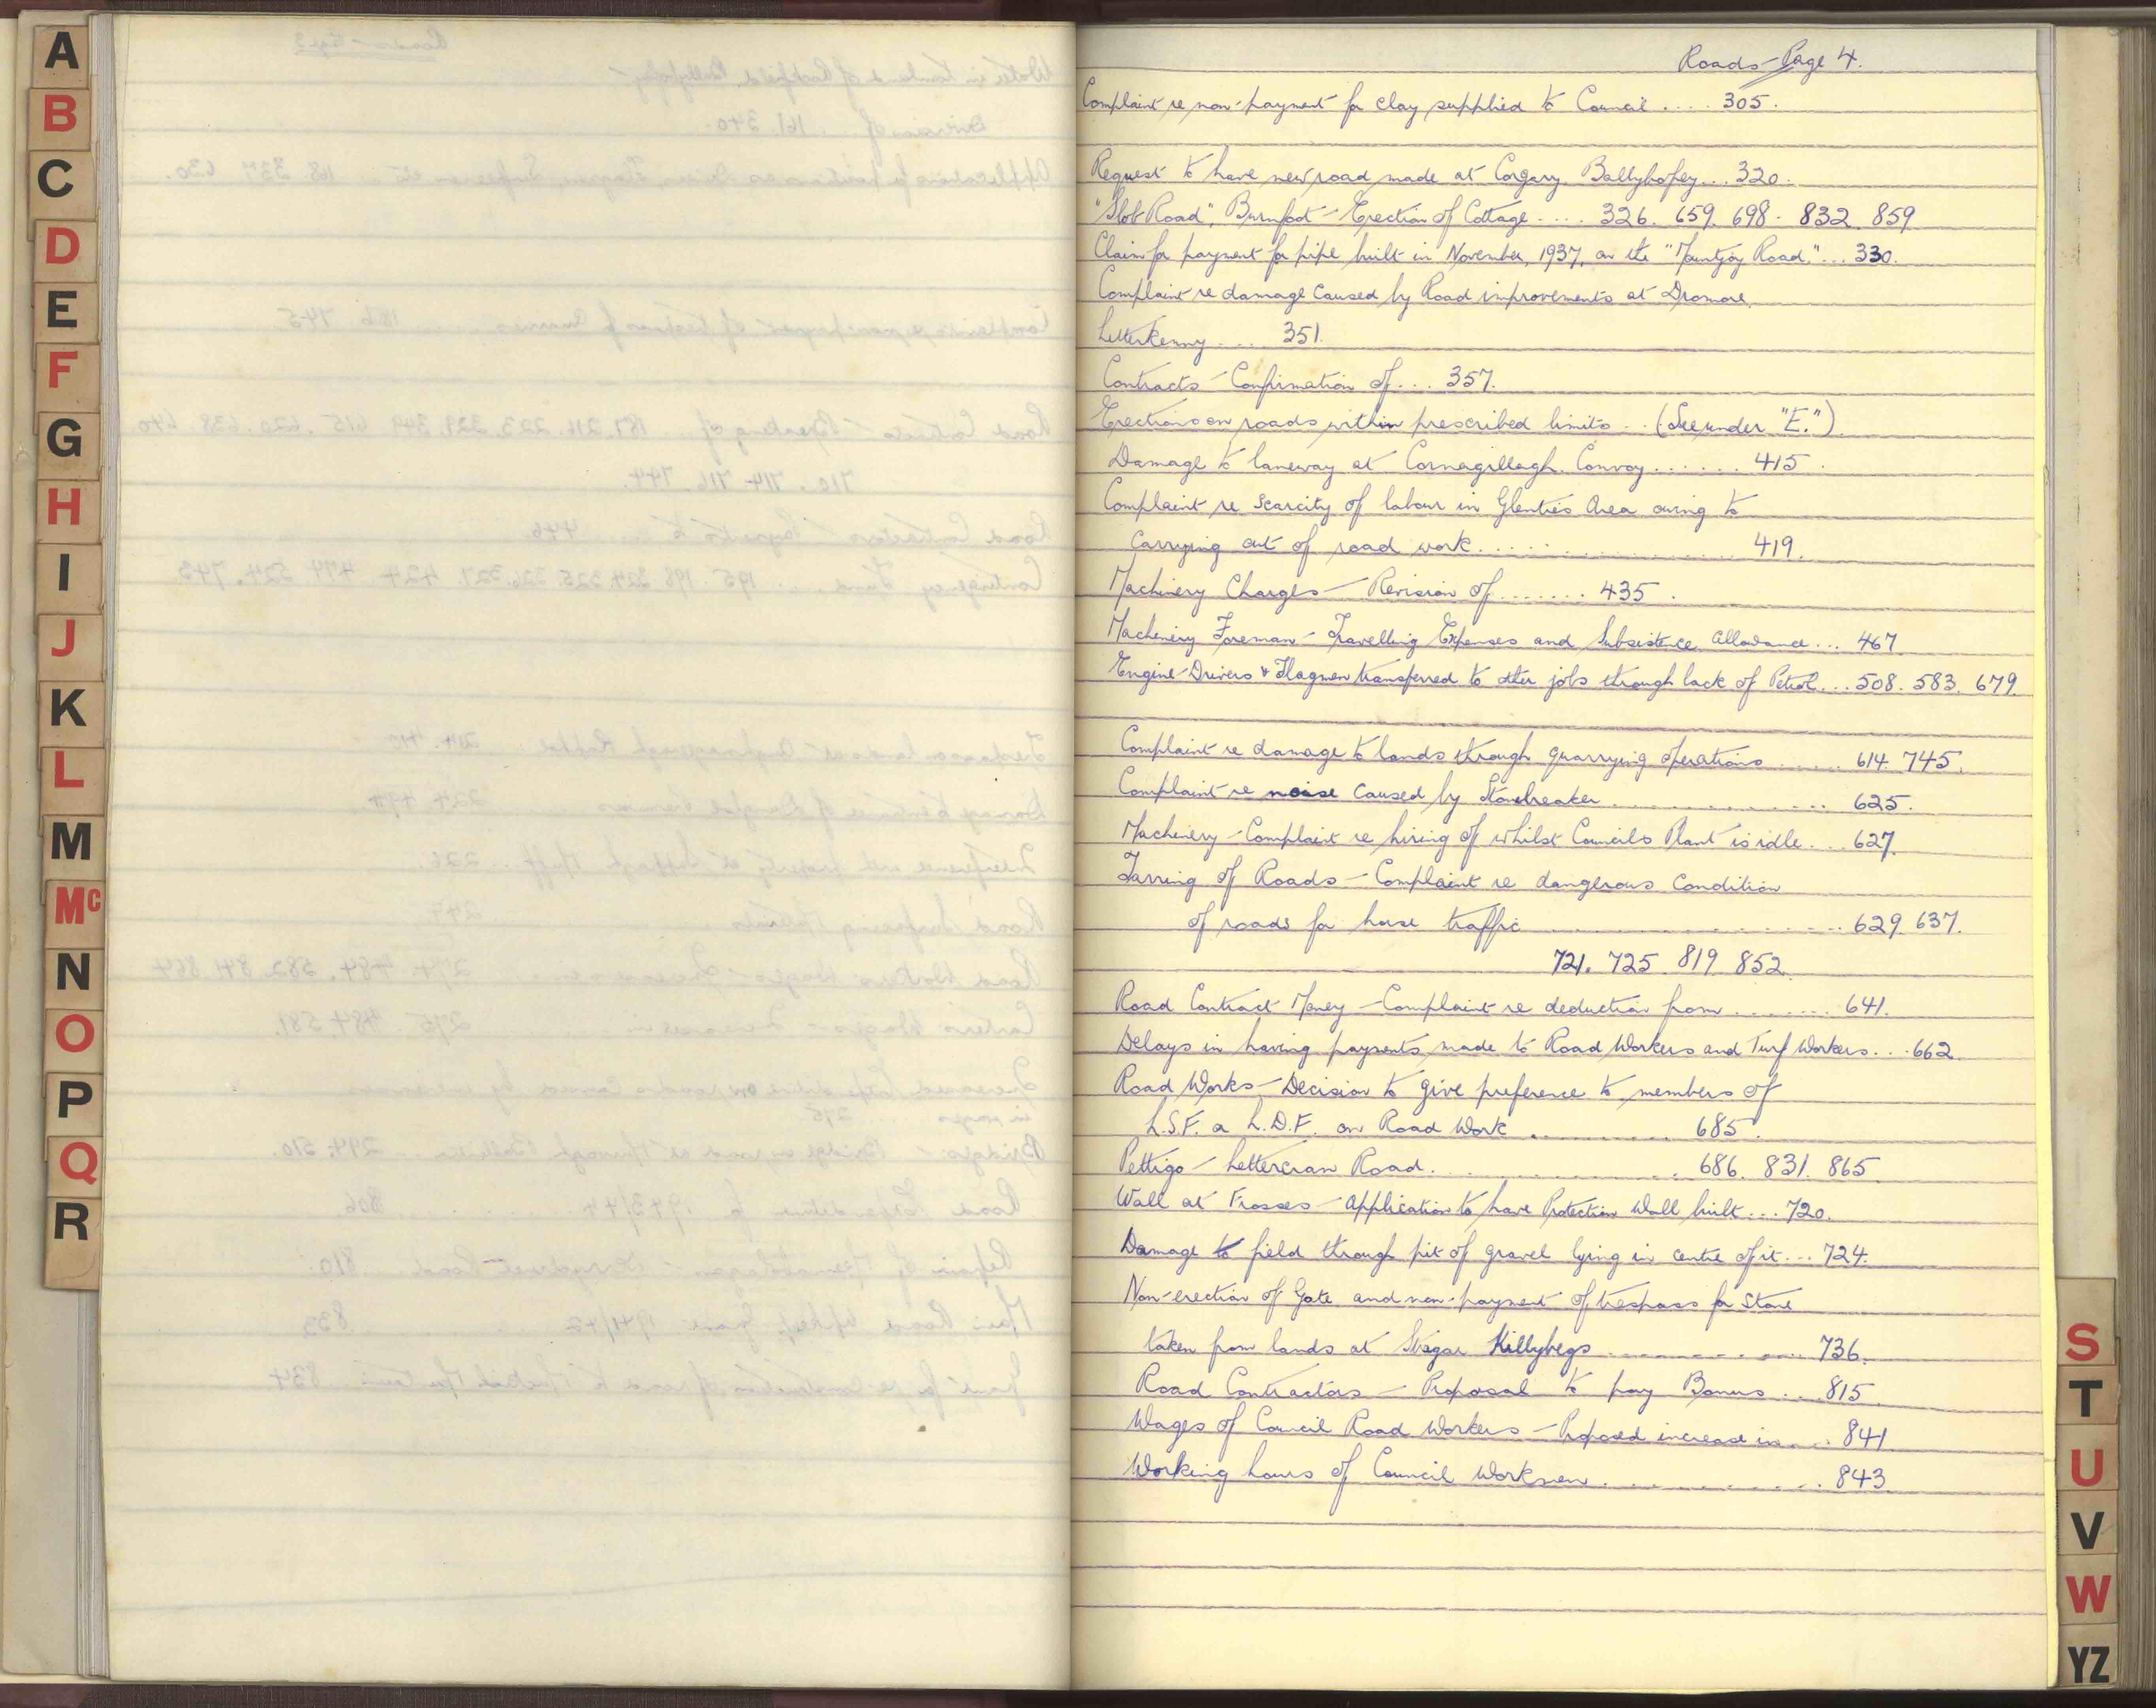 A
B
C
D
E
F
G
H
I
J
K
L
M
Mc
N
O
P
Q
R
Roads - Page 4.
Complaint re non-payment for clay supplied to Council .... 305.
Request to have new road made at Corgary Ballybofey ... 320.
"Slob Road", Burnfoot - Erection of Cottage .... 326. 659. 698. 832. 859
Claim for payment for pipe built in November, 1937, on the "Mountjoy Road." ... 330.
Complaint re damage caused by Road improvements at Dromore,
Letterkenny .... 351.
Contracts - Confirmation of ... 357.
Erections on roads within prescribed limits .. (See under "E.")
Damage to laneway at Cornagillagh. Convoy ...... 415.
Complaint re scarcity of labour in Glenties Area owing to
carrying out of road work ................ 419.
Machinery Charges - Revision of ....... 435.
Machinery Foreman - Travelling Expenses and Subsistence Allowance ... 467
Engine-Drivers & Flagmen transferred to other jobs through lack of Petrol ... 508. 583. 679.
Complaint re damage to lands through quarrying operations ...... 614. 745.
Complaint re noise caused by Stonebreaker ................ 625.
Machinery - Complaint re hiring of whilst Councils Plant is idle ... 627.
Tarring of Roads - Complaint re dangerous condition
of roads for horse traffic ................ 629. 637.
721. 725. 819. 852.
Road Contract Money - Complaint re deduction from ........ 641.
Delays in having payments made to Road Workers and Turf Workers ... 662.
Road Works - Decision to give preference to members of
L.S.F. or L.D.F. on Road Work ........... 685.
Pettigo - Lettercran Road ................ 686. 831. 865
Wall at Frosses - Application to have Protection Wall built ... 720.
Damage to field through pit of gravel lying in centre of it ... 724.
Non-erection of Gate and non-payment of trespass for stone
taken from lands at Killybegs ............ 736.
Road Contractors - Proposal to pay Bonus ... 815
Wages of Council Road Workers - Proposed increase in .... 841.
Working hours of Council Workmen ............ 843.
S
T
U
V
W
YZ